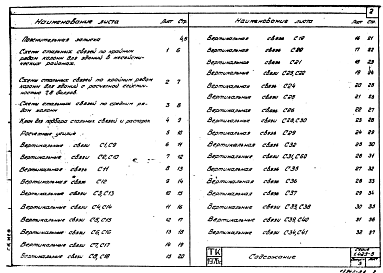 2
Наименование листа Лист Стр.
Пояснительная записка 4,5
Схемы стальных связей по крайним рядам колонн для зданий в несейсмических районах. 1 6
Схемы стальных связей по крайним рядам колонн для зданий с расчетной сейсмичностью 7,8 баллов 2 7
Схемы стальных связей по средним рядам колонн 3 8
Ключ для подбора стальных связей и распорок 4 9
Расчетные усилия 5 10
Вертикальные связи С1, С9 6 11
Вертикальные связи С2, С10 7 12
Вертикальные связи С11 8 13
Вертикальные связи С12 9 14
Вертикальные связи С3, С13 10 15
Вертикальные связи С4, С14 11 16
Вертикальные связи С5, С15 12 17
Вертикальные связи С6, С16 13 18
Вертикальные связи С7, С17 14 19
Вертикальные связи С8, С18 15 20
Наименование листа Лист Стр.
Вертикальные связи С19 16 21
Вертикальные связи С20 17 22
Вертикальные связи С21 18 23
Вертикальные связи С22, С23 19 24
Вертикальные связи С24 20 25
Вертикальные связи С25 21 26
Вертикальные связи С26 22 27
Вертикальные связи С28, С30 23 28
Вертикальные связи С29 24 29
Вертикальные связи С32 25 30
Вертикальные связи С31, С60 26 31
Вертикальные связи С35 27 32
Вертикальные связи С36 28 33
Вертикальные связи С37 29 34
Вертикальные связи С33, С38 30 35
Вертикальные связи С39, С40 31 36
Вертикальные связи С34, С41 32 37
ТК
1970г.
Содержание